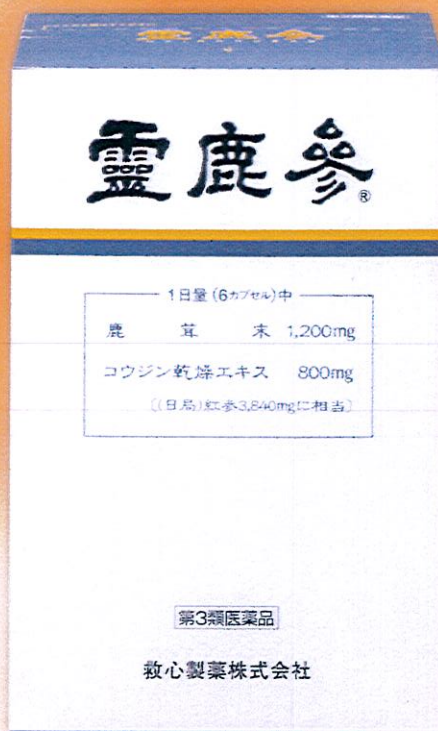 靈鹿參®
1日量(6カプセル)中
鹿茸末 1,200mg
コウジン乾燥エキス 800mg
〔(日局)紅参3,840mgに相当〕
第3類医薬品
救心製薬株式会社